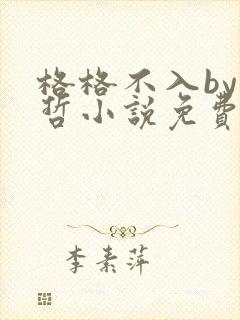 格格不入by
哲小説免費
李素萍